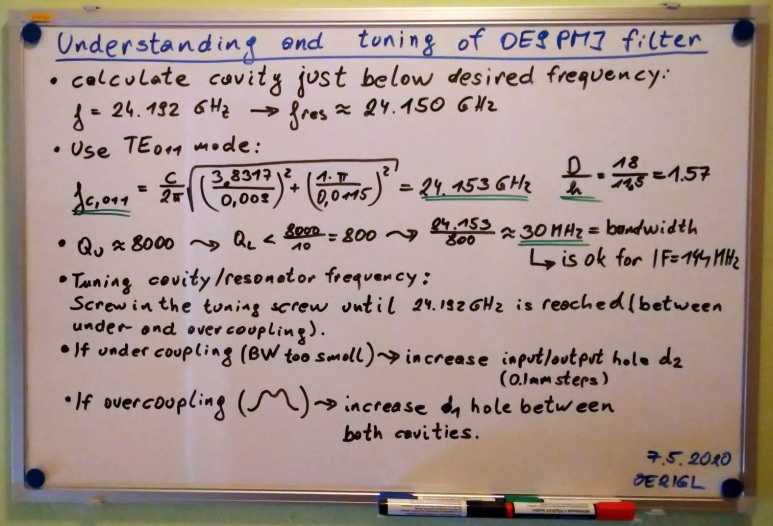 Understanding and tuning of OE9PMJ filter
• calculate cavity just below desired frequency:
f = 24.192 GHz → fres ≈ 24.150 GHz
• Use TE011 mode:
fc,011 = c/2π √((3,8317/0,009)² + (1·π/0,0115)²) = 24.153 GHz D/h = 18/11,5 = 1.57
• QU ≈ 8000 ⤳ QL < 8000/10 = 800 ⤳ 24.153/800 ≈ 30 MHz = bandwidth
↳ is ok for IF=144 MHz
• Tuning cavity/resonator frequency:
Screw in the tuning screw until 24.192 GHz is reached (between
under- and overcoupling).
• If under coupling (BW too small) ⤳ increase input/output hole d2
(0.1mm steps)
• If overcoupling ( ) ⤳ increase d1 hole between
both cavities.
7.5.2020
OE2IGL